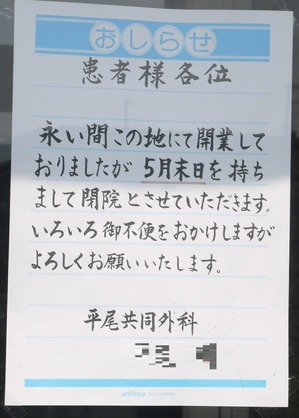 おしらせ
患者様各位
永い間この地にて開業して
おりましたが5月末日を持ち
まして閉院とさせていただきます。
いろいろ御不便をおかけしますが
よろしくお願いいたします。
平尾共同外科
alfresa